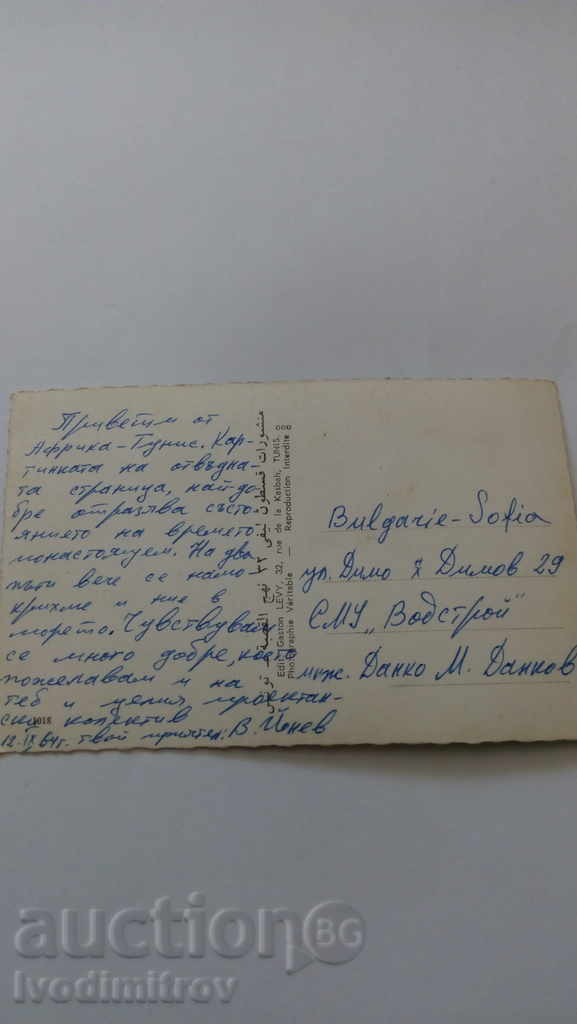 Приветим от
Африка-Тунис. Кар-
тинката на отвъдна-
та страница, най-до-
бре отразява състо-
янието на времето
понастоящем. На два
пъти вече се намо-
крихме и ние в
морето. Чувствувам
се много добре, кое
пожелавам и на
теб и целия проектан-
ски колектив
12.IX 64г. твой приятел: В. Йонев
1018
منشورات قسطون ليفي ٣٢ نهج القصبة تونس
Edit. Gaston LEVY, 32, rue de la Kasbah, TUNIS.
Photographie Véritable — Reproduction Interdite
Bulgarie-Sofia
ул. Димо х Димов 29
СМУ "Водстрой"
инж. Данко М. Данков
auctionBG
Ivodimitrov